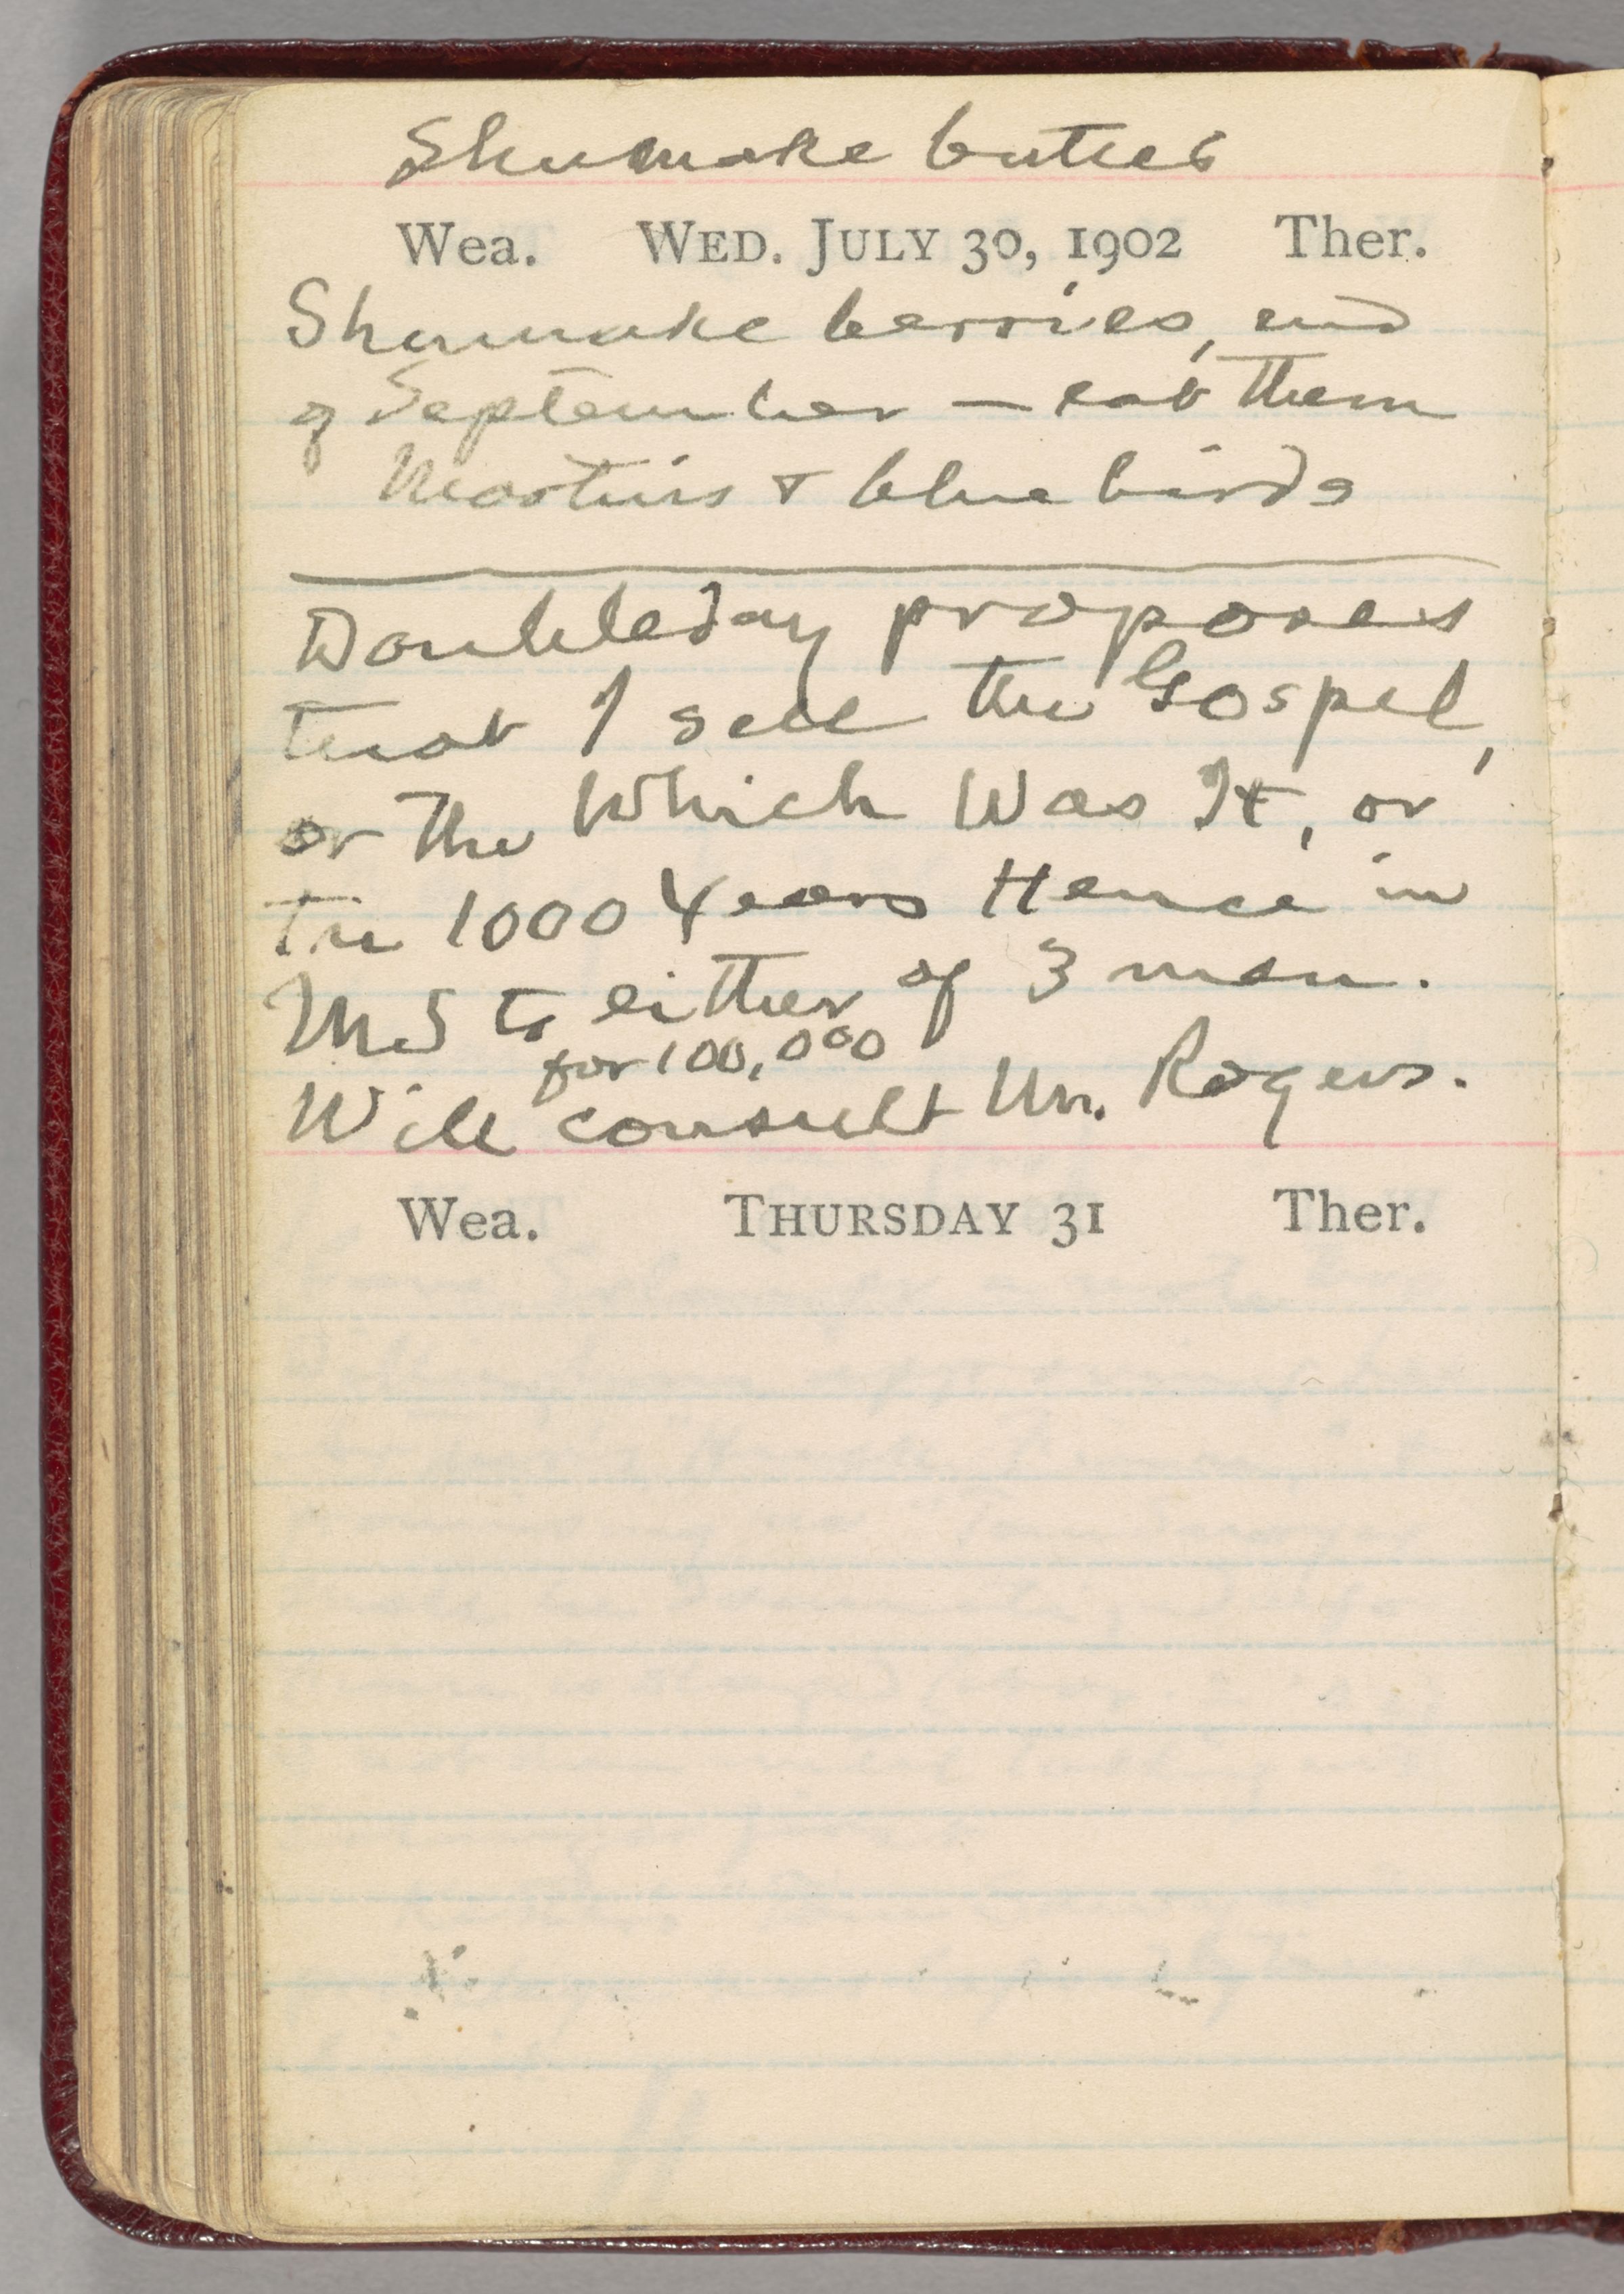 Shumake butter
Wea. WED. JULY 30, 1902 Ther.
Shumake berries, end
of September — eat them
Martins & blue birds
Doubleday proposes
that I sell the Gospel,
or the Which Was It, or
the 1000 Years Hence in
MS to either of 3 men.
for 100,000
Will consult Mr. Rogers.
Wea. THURSDAY 31 Ther.